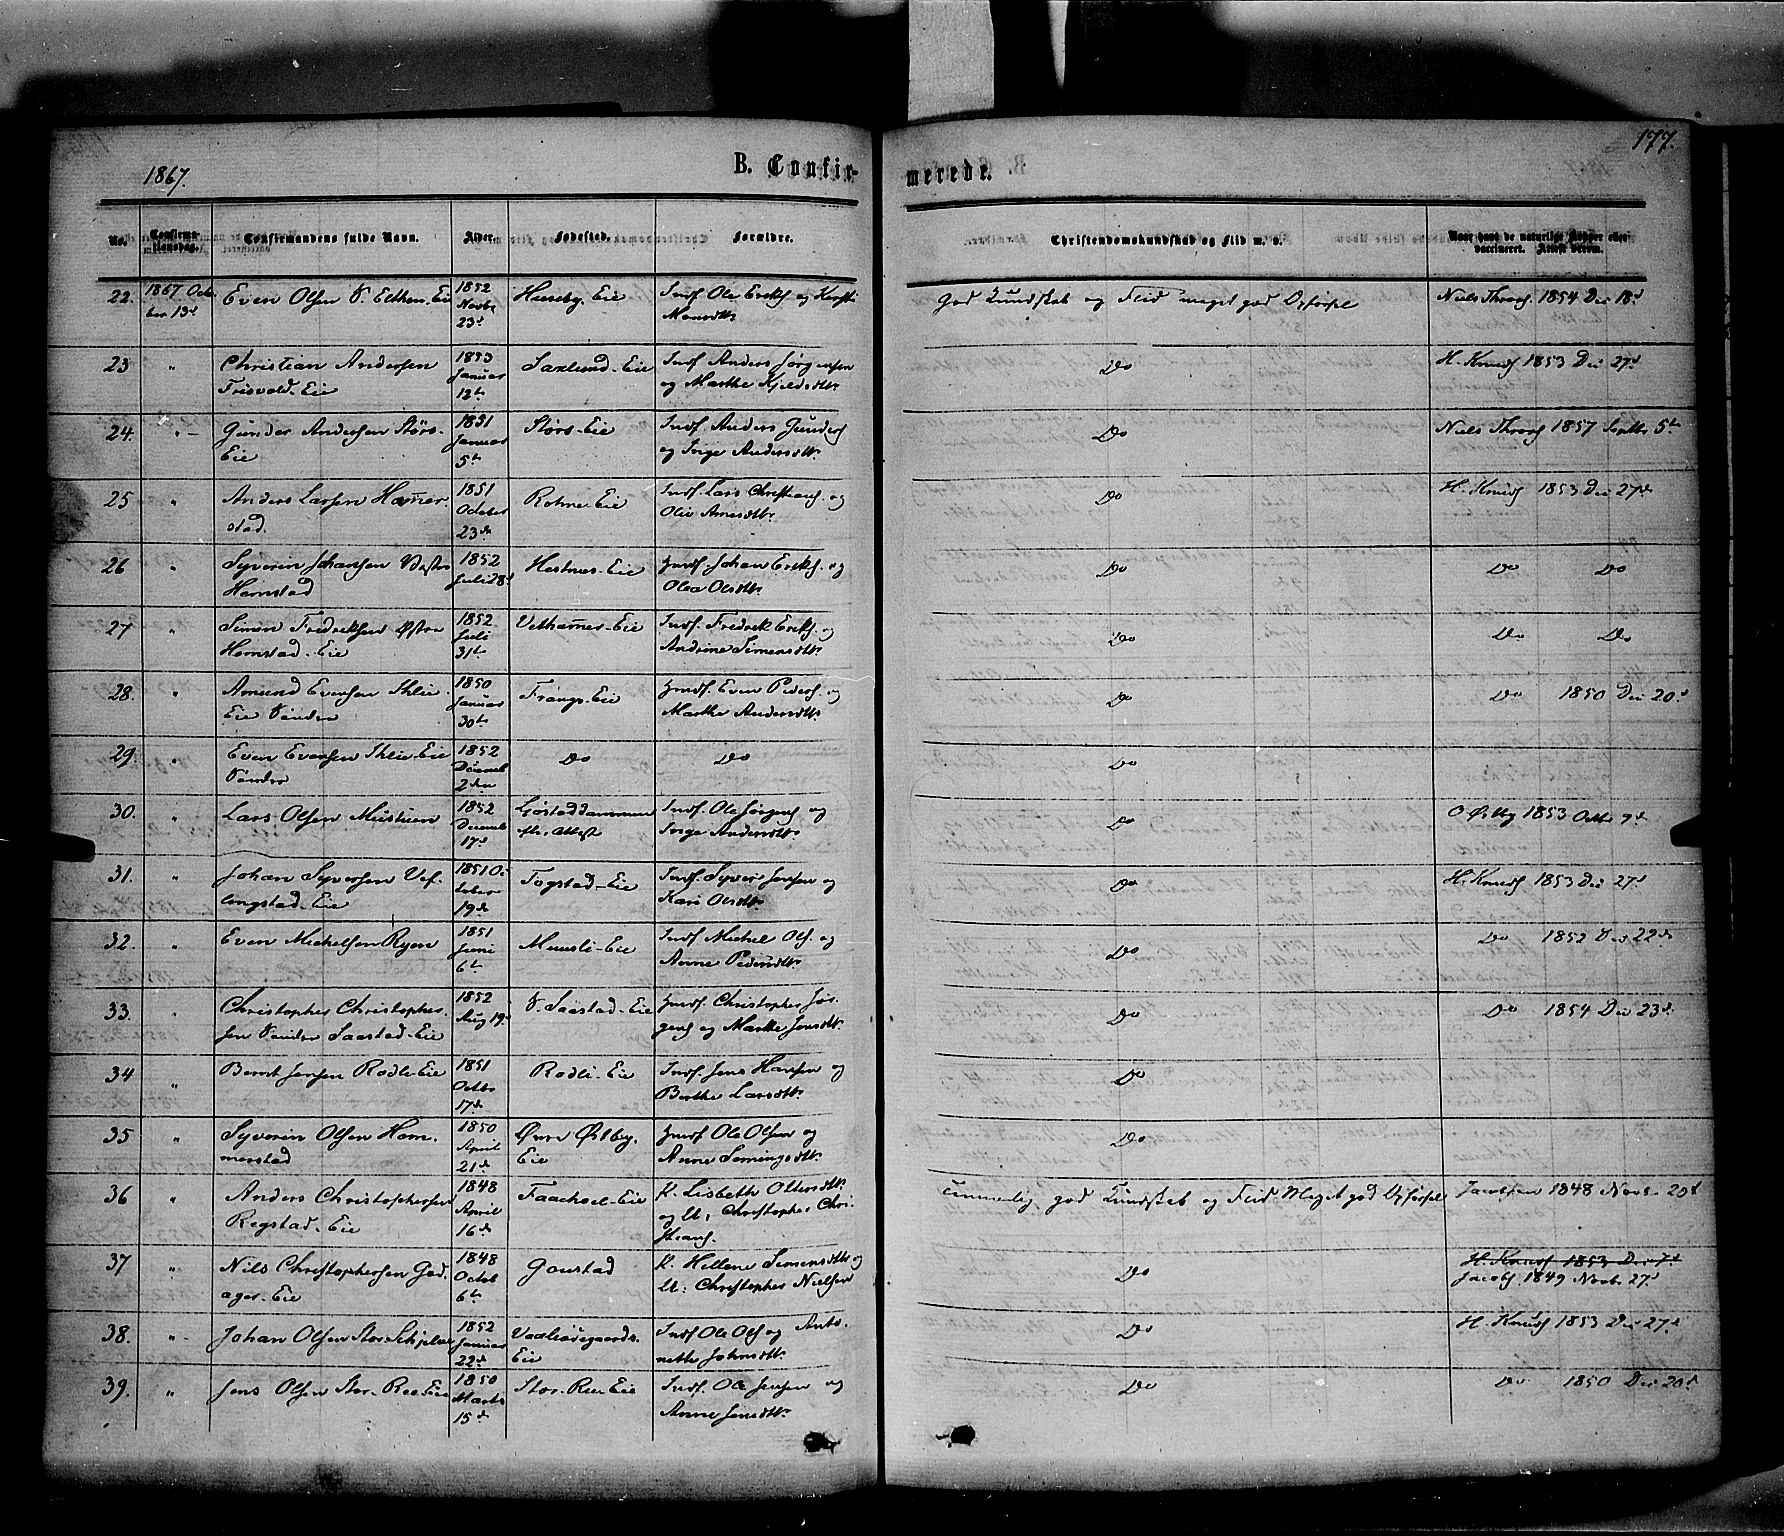 1867.
B. Confir-
merede.
177.
No. Confirma-tionsdag. Confirmandens fulde Navn. Alder. Fødested. Forældre. Christendomskundskab og Flid m. v. Naar havt de naturlige Kopper eller vaccineret. Attest derom.
22. 1867 Octo-ber 13d Even Olsen Eie 1852 Novbr 23d Huseby-Eie Indf. Ole Eriks. og Kirsti Monsdttr. God Kundskab og Flid meget god Opførsel Niels Thros. 1854 Dec 18d
23 " Christian Andersen Frisvold-Eie 1853 Januar 12te Saxlund-Eie Indf. Anders Jørgensen og Marthe Kjeldsdttr. Do H. Knuds. 1853 Dec 27d
24. " Gunder Andersen Störs-Eie 1851 Januar 5te Störs-Eie Indf. Anders Gunders. og Inge Andersdttr. Do Niels Thros. 1857 Septbr 5te
25 " Anders Larsen Hamer-stad. 1851 October 23de Rohne-Eie Indf. Lars Christians. og Olie Arnesdttr. Do H. Knuds. 1853 Dec 27de
26 " Syverin Johansen Vestre Hamstad 1852 Juli 28d Hestnes-Eie Indf. Johan Eriks. og Olea Olsdttr. Do Do Do
27 " Simen Fredriksen Østre Hamstad-Eie 1852 Juli 31te Vethamer-Eie Indf. Fredrik Eriks. og Andrine Simensdttr. Do Do Do
28 " Amund Evensen Ihle-Eie Søndre 1850 Januar 30te Frangs-Eie Indf. Even Peders. og Marthe Andersdttr. Do Do 1850 Dec 20d
29. " Even Evensen Ihle-Eie Søndre 1852 Decemb 2den Do Do Do
30. " Lars Olsen Mustuen 1852 Decemb 17d Attest Indf. Ole Jørgens. og Inge Andersdttr. Do O Østby 1853 Octbr 9d
31. " Johan Syversen Vef-longstad-Eie 1851 Oc-tober 19de Togstad-Eie Indf. Syver Jensen og Kari Olsdttr. Do H. Knuds. 1853 Dec 27d
32. " Even Mickelsen Ryen 1851 Juni 6te Muusli-Eie Indf. Mickel Ols. og Anne Pedersdttr. Do Do 1852 Dec 22de
33. " Christopher Christopher-sen Søndre Saastad-Eie 1852 Aug 19. S. Saastad-Eie Indf. Christopher Jør-gens. og Marthe Jensdttr. Do Do 1854 Dec 23d
34 " Bernt Jensen Rodli-Eie 1851 Octbr 17de Rodli-Eie Indf. Jens Hansen og Berthe Larsdttr. Do
35 " Syverin Olsen Ham-merstad 1850 April 21de Øvre Østby-Eie Indf. Ole Olsen og Anne Semingsdttr. Do
36 " Anders Christophersen Rogstad-Eie 1848 April 16de Eie P. Lisbeth Ottersdttr. og U: Christopher Chri-stians. Temmelig god Kundskab og Flid Meget god Opførsel Jacobsen 1848 Novbr 20d
37 " Nils Christophersen God-ager-Eie 1848 Octob 6te Gaustad P. Hellene Simensdttr og U: Christopher Nielsen Do H. Knuds. 1853 Dec 7d Jacobs. 1849 Novbr. 27d
38. " Johan Olsen Stor-Schjelve 1852 Januar 22de Eie Indf. Ole Ols. og Anto-nette Johnsdttr. Do H. Knuds. 1853 Dec 27d
39. " Jens Olsen Stor-Ree-Eie 1850 Marts 15de Stor-Ree-Eie Indf. Ole Jensen og Anne Jensdttr. Do Do 1850 Dec 20d